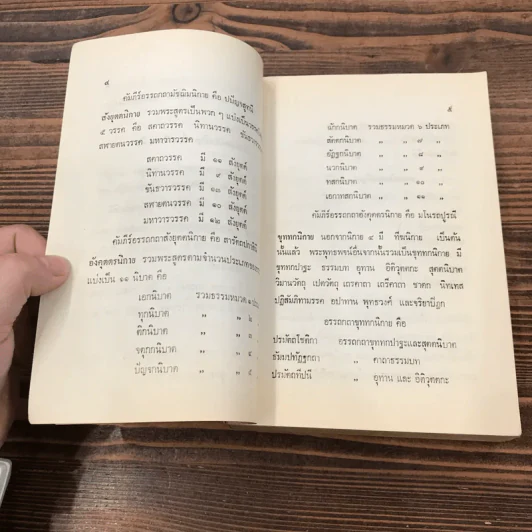 ๔
คัมภีร์อรรถกถามัชฌิมนิกาย คือ ปปัญจสูทนี
สังยุตตนิกาย รวมพระสูตรเป็นพวก ๆ แบ่งเป็น
๕ วรรค คือ สคาถวรรค นิทานวรรค
สฬายตนวรรค มหาวารวรรค
สคาถวรรค มี ๑๑ สังยุตต์
นิทานวรรค มี ๙ สังยุตต์
ขันธวารวรรค มี ๑๓ สังยุตต์
สฬายตนวรรค มี ๑๐ สังยุตต์
มหาวารวรรค มี ๑๒ สังยุตต์
คัมภีร์อรรถกถาสังยุตตนิกาย คือ สารัตถปกาสินี
อังคุตตรนิกาย รวมพระสูตรตามจำนวนประเภทของธรรม
แบ่งเป็น ๑๑ นิบาต คือ
เอกนิบาต รวมธรรมหมวด ๑
ทุกนิบาต ,, ,, ๒
ติกนิบาต ,, ,, ๓
จตุกกนิบาต ,, ,, ๔
ปัญจกนิบาต ,, ,, ๕
๕
ฉักกนิบาต รวมธรรมหมวด ๖ ประเภท
สัตตกนิบาต ,, ๗ ,,
อัฏฐกนิบาต ,, ๘ ,,
นวกนิบาต ,, ๙ ,,
ทสกนิบาต ,, ๑๐ ,,
เอกาทสกนิบาต ,, ๑๑ ,,
คัมภีร์อรรถกถาอังคุตตรนิกาย คือ มโนรถปูรณี
ขุททกนิกาย นอกจากนิกาย ๔ มี ทีฆนิกาย เป็นต้น
นั้นแล้ว พระพุทธพจน์อื่นจากนั้นรวมเป็นขุททกนิกาย มี
ขุททกปาฐะ ธรรมบท อุทาน อิติวุตตกะ สุตตนิบาต
วิมานวัตถุ เปตวัตถุ เถรคาถา เถรีคาถา ชาดก นิทเทส
ปฏิสัมภิทามรรค อปาทาน พุทธวงศ์ และจริยาปิฎก
อรรถกถาขุททกนิกาย คือ
ปรมัตถโชติกา อรรถกถาขุททกปาฐะและสุตตนิบาต
ธัมมปทัฏฐกถา ,, คาถาธรรมบท
ปรมัตถทีปนี ,, อุทาน และ อิติวุตตกะ